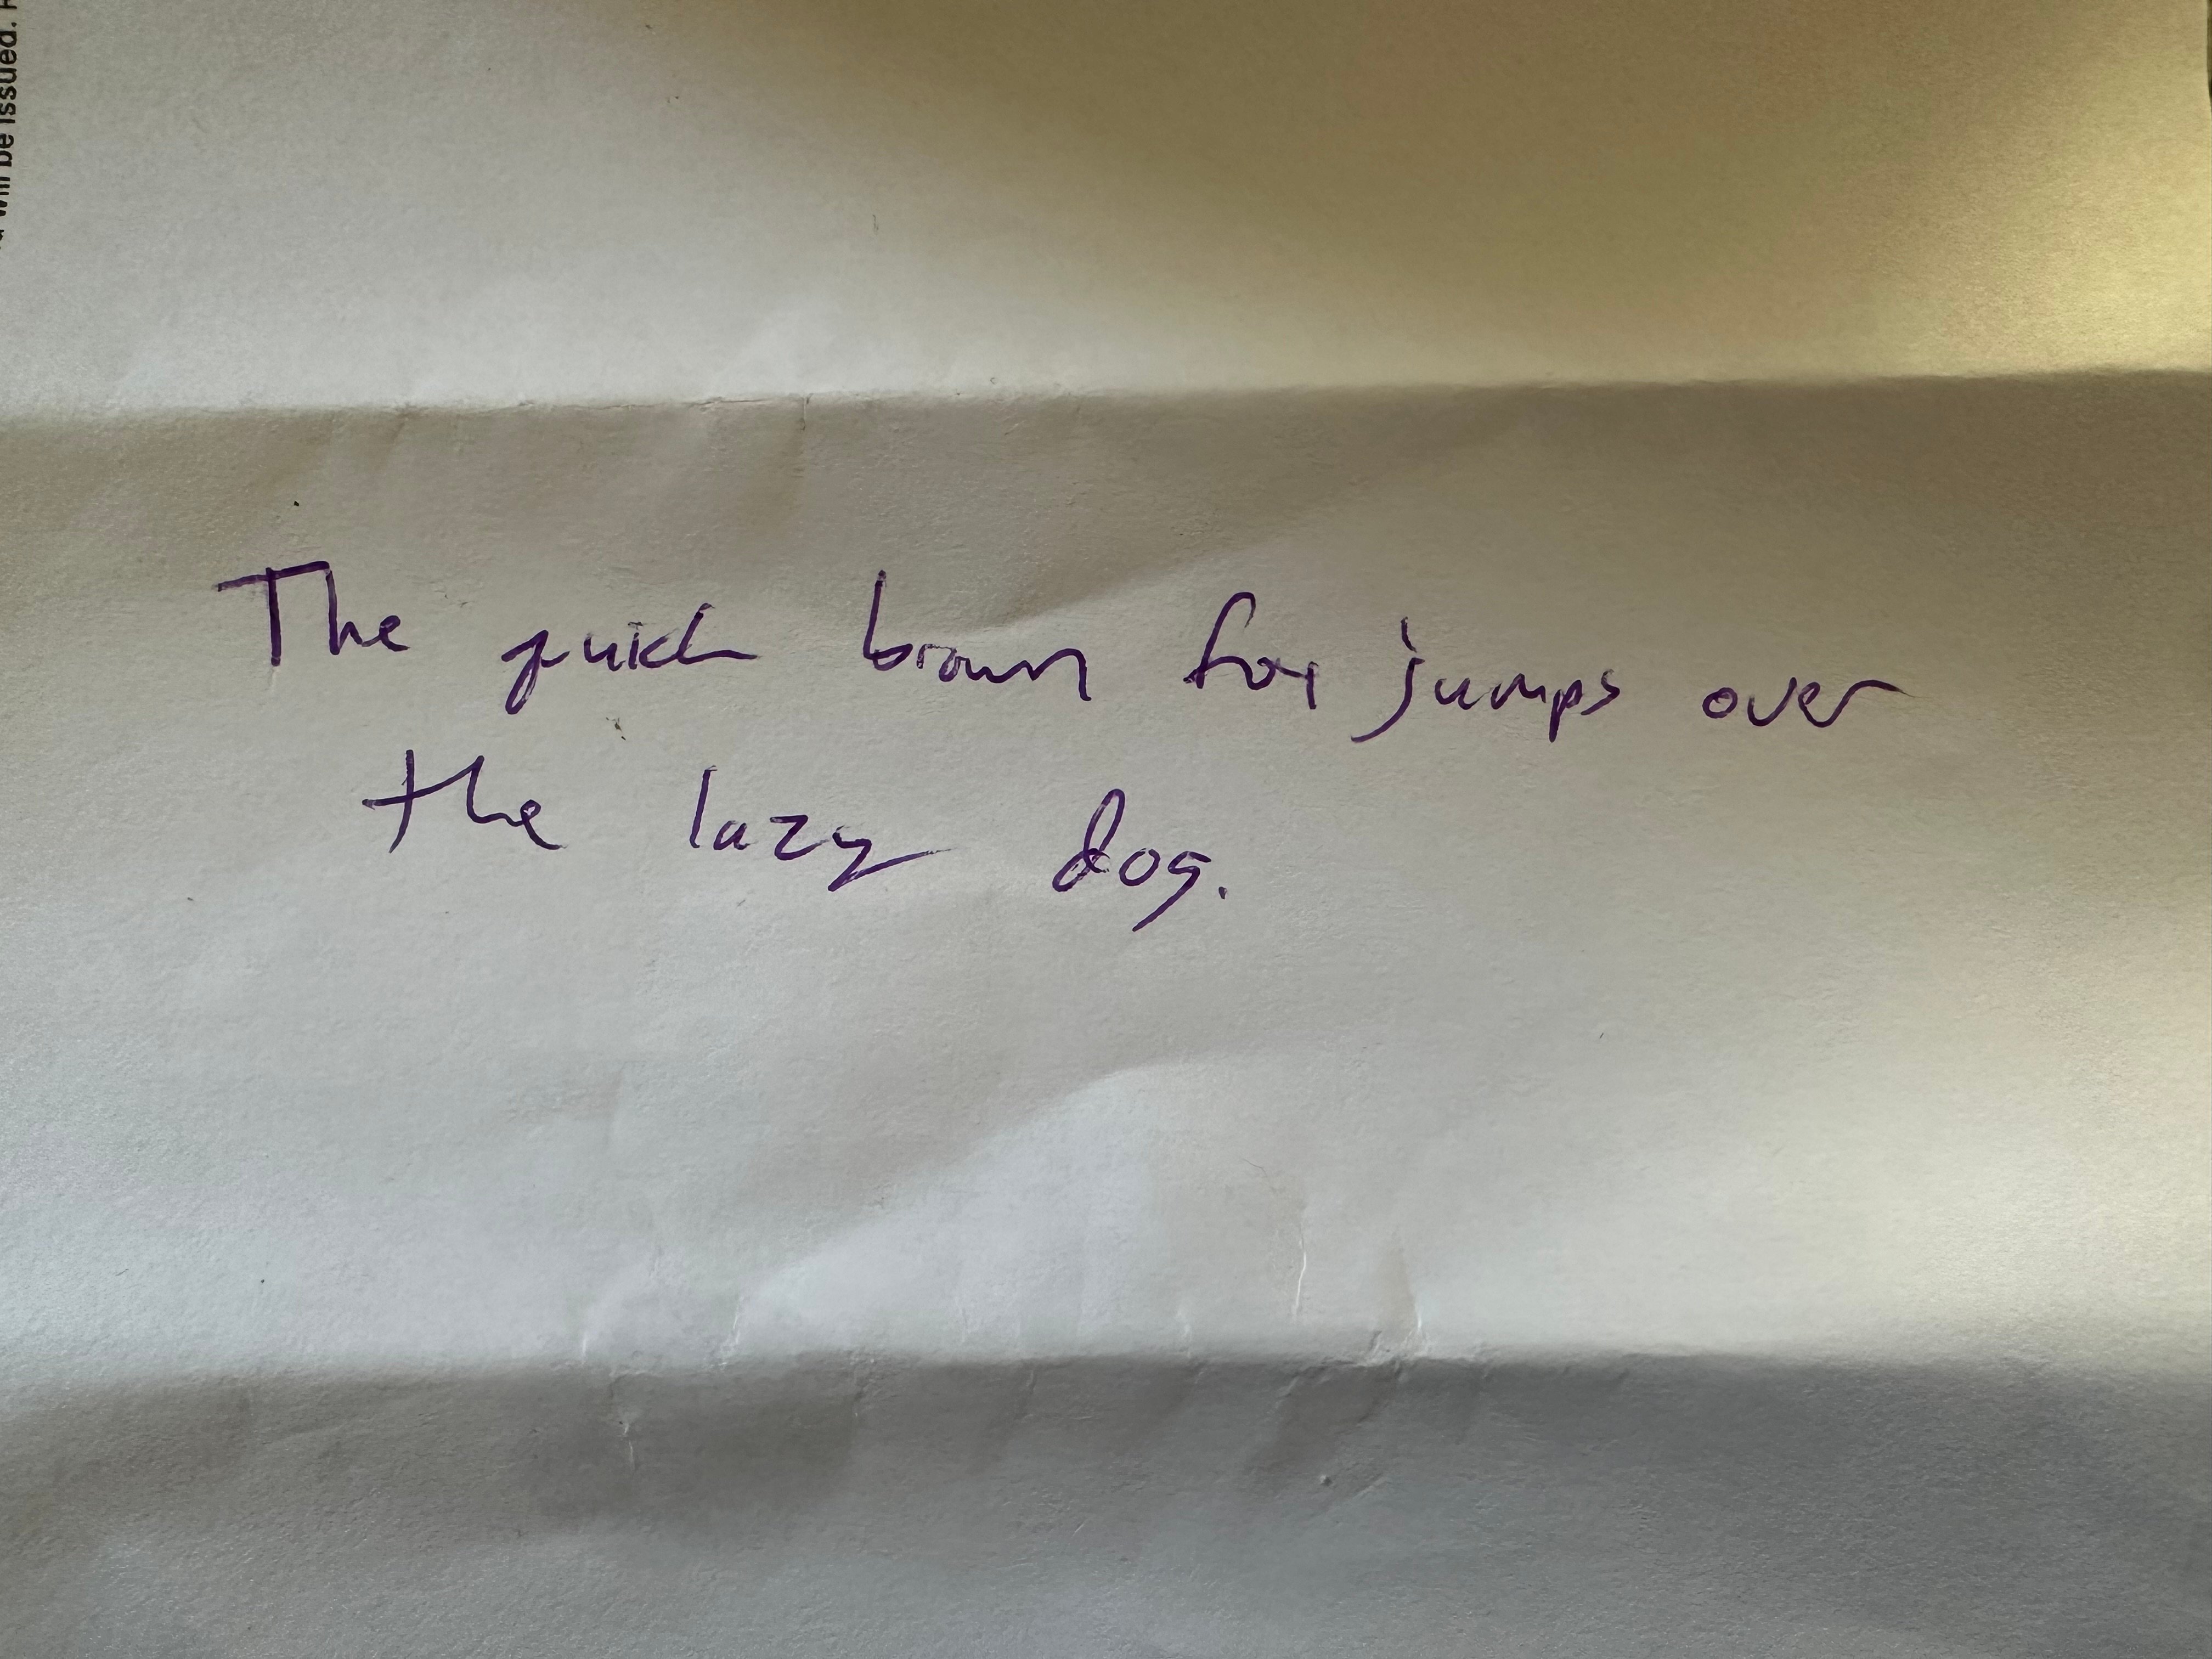 will be issued.
The quick brown fox jumps over
the lazy dog.